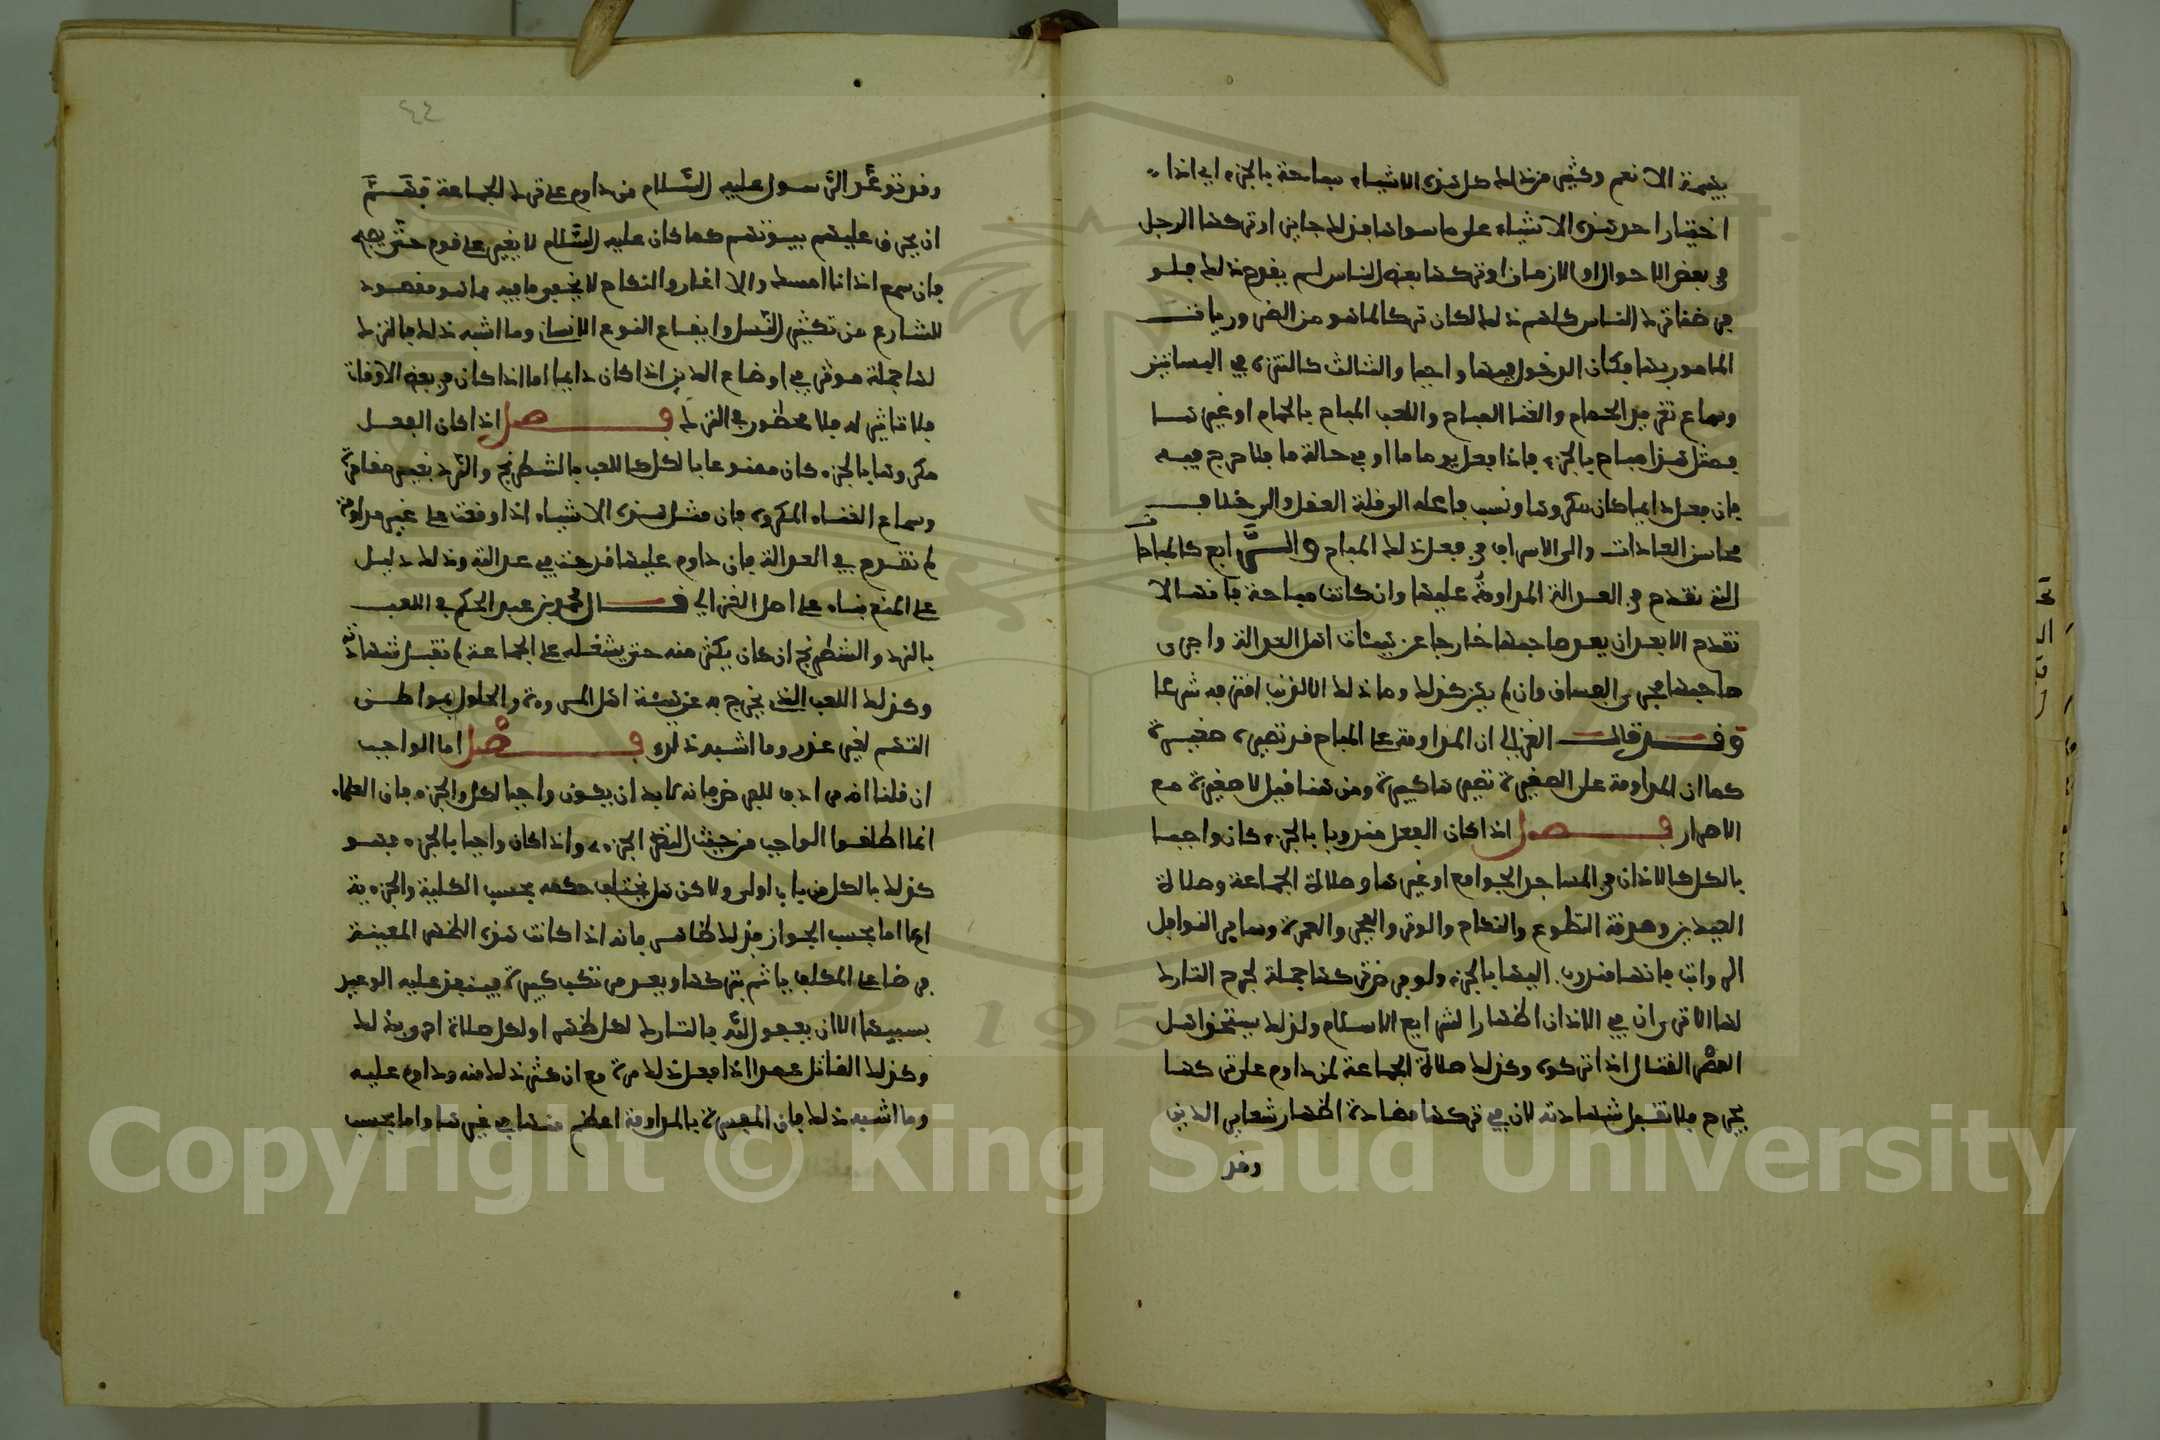 بهيمة الانعم وكثير من ذلك كل هذه الاشياء مباحة بالجزء اي اذا
اختار احد هذه الاشياء على ما سواها فذلك جايز او تركها الرجل
في بعض الاحوال او الازمان او تركها بعض الناس لم يقدح ذلك فلو
فرضنا ترك الناس كلهم ذلك لكان تركا لما هو من الضروريات
المامور بها فكان الدخول فيها واجبا والثالث كالتنزه في البساتين
وسماع تغريد الحمام والغنا المباح واللعب المباح بالحمام او غيرها
فمثل هذا مباح بالجزء فاذا فعل يوما ما او في حالة ما فلا حرج فيه
فان فعل دايما كان مكروها ونسب فاعله الى قلة العقل والى خلاف
محاسن العادات والى الاسراف في فعل ذلك المباح والرابع كالمباحات
التي تقدح في العدالة المداومة عليها وان كانت مباحة فانها لا
تقدح الا بعد ان يعد صاحبها خارجا عن هيئات اهل العدالة واجرى
صاحبها مجرى الفساق وان لم يكن كذلك وما ذلك الا لذنب اقترفه شرعا
وقد قال الغزالي ان المداومة على المباح قد تصيره صغيرة
كما ان المداومة على الصغيرة تصيرها كبيرة ومن هنا قيل لا صغيرة مع
الاصرار فصل اذا كان الفعل مندوبا بالجزء كان واجبا
بالكل كالاذان في المساجد الجوامع او غيرها وصلاة الجماعة وصلاة
العيدين وصدقة التطوع والنكاح والوتر والفجر والعمرة وساير النوافل
الرواتب فانها مندوب اليها بالجزء ولو فرض تركها جملة لجرح التارك
لها الا ترى ان في الاذان اظهارا لشرايع الاسلام ولذلك يستحق اهل
المصر القتال اذا تركوه وكذلك صلاة الجماعة لمن داوم على تركها
يجرح فلا تقبل شهادته لان في تركها مضادة اظهار شعاير الدين
وقد
٤٢
وقد توعد الرسول عليه السلام من داوم على ترك الجماعة فهم
ان يحرق عليهم بيوتهم كما كان عليه السلام لا يغير على قوم حتى يصبح
فان سمع اذانا امسك والا اغار والنكاح لا يخفى ما فيه مما هو مقصود
للشارع من تكثير النسل وابقاء النوع الانساني وما اشبه ذلك فالترك
لها جملة موثر في اوضاع الدين اذا كان دايما اما اذا كان في بعض الاوقات
فلا تاثير له فلا محظور في الترك فصل اذا كان الفعل
مكروها بالجزء كان ممنوعا بالكل كاللعب بالشطرنج والنرد بغير مقامرة
وسماع الغناء المكروه فان مثل هذه الاشياء اذا وقعت على غير مداومة
لم تقدح في العدالة فان داوم عليها قدحت في عدالته وذلك دليل
على المنع بناء على اصل الغزالي قال محمد بن عبد الحكم في اللعب
بالنرد والشطرنج ان كان يكثر منه حتى يشغله عن الجماعة لم تقبل شهادته
وكذلك اللعب الذي يخرج به عن هيئة اهل المروءة والحلول بمواطن
التهم لغير عذر وما اشبه ذلك فصل اما الواجب
ان قلنا انه مرادف للفرض فانه لا بد ان يكون واجبا لكل والجزء فان العلماء
انما اطلقوا الواجب من حيث النظر الجزءي واذا كان واجبا بالجزء فهو
كذلك بالكل من باب اولى ولاكن هل يختلف حكمه بحسب الكلية والجزءية
اما اما بحسب الجواز فذلك ظاهر فانه اذا كانت هذه الظهر المعينة
فرضا على المكلف ياثم بتركها ويعد مرتكب كبيرة فينفذ عليه الوعيد
بسببها الا ان يعفو الله فالتارك لكل ظهر او لكل صلاة احرى بذلك
وكذلك القاتل عمدا اذا فعل ذلك مرة مع ان كثر ذلك منه وداوم عليه
وما اشبه ذلك فان المفسدة بالمداومة اعظم منها في غيرها واما بحسب
Copyright © King Saud University
1957